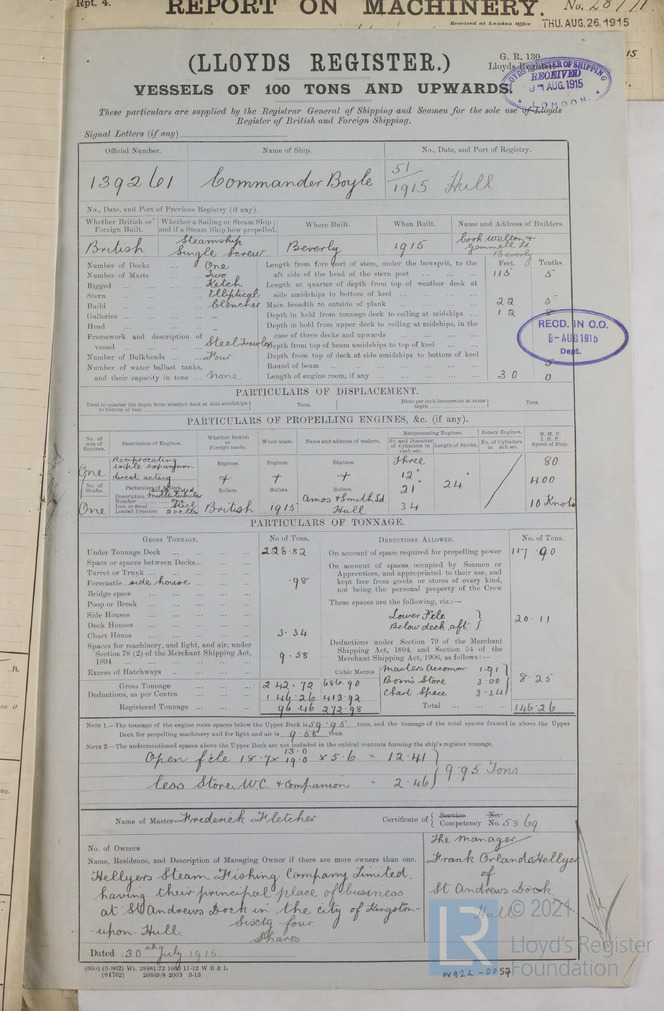 Rpt. 4.
REPORT ON MACHINERY.
No.
Received at London Office THU. AUG. 26. 1915
(LLOYDS REGISTER.)
G. R. 130.
VESSELS OF 100 TONS AND UPWARDS.
LLOYDS REGISTER OF SHIPPING
RECEIVED
AUG. 1915
LONDON.
These particulars are supplied by the Registrar General of Shipping and Seamen for the sole use of Lloyds
Register of British and Foreign Shipping.
Signal Letters (if any)
Official Number. Name of Ship. No., Date, and Port of Registry.
139261 Commander Boyle 51/1915 Hull
No., Date, and Port of Previous Registry (if any).
Whether British or Foreign Built. Whether a Sailing or Steam Ship; and if a Steam Ship how propelled. Where Built. When Built. Name and Address of Builders.
British Steamship Single Screw Beverly 1915 Cook Welton & Gemmell Ld Beverly
Feet. Tenths
Number of Decks One Length from fore part of stem, under the bowsprit, to the
Number of Masts Two aft side of the head of the stern post 115 5
Rigged Ketch Length at quarter of depth from top of weather deck at
Stern Elliptical side amidships to bottom of keel
Build Clencher Main breadth to outside of plank 22 5
Galleries Depth in hold from tonnage deck to ceiling at midships 12
Head Depth in hold from upper deck to ceiling at midships, in the
Framework and description of case of three decks and upwards
vessel Steel Trawler Depth from top of beam amidships to top of keel
Number of Bulkheads Four Depth from top of deck at side amidships to bottom of keel
Number of water ballast tanks, Round of beam
and their capacity in tons none Length of engine room, if any 30 0
RECD. IN C.O.
AUG 1915
Dept.
PARTICULARS OF DISPLACEMENT.
Total to quarter the depth from weather deck at side amidships to bottom of keel Tons. Ditto per inch immersion at same depth Tons.
PARTICULARS OF PROPELLING ENGINES, &c. (if any).
No. of sets of Engines. Description of Engines. Whether British or Foreign made. When made. Name and address of makers. Reciprocating Engines. Rotary Engines. N. H. P. I. H. P. Speed of Ship.
No. and Diameter of Cylinders in each set. Length of Stroke. No. of Cylinders in each set.
One Reciprocating triple expansion direct acting Three 80
Engines. Engines. Engines.
12" 24" 400
No. of Shafts. Particulars of Boilers. Boilers. Boilers. Boilers. 21"
Description Multitubular
Number
One Iron or Steel Steel British 1915 Amos & Smith Ld Hull 34 10 Knots
Loaded Pressure 200 lbs
PARTICULARS OF TONNAGE.
GROSS TONNAGE. No. of Tons. DEDUCTIONS ALLOWED. No. of Tons.
Under Tonnage Deck 228.82 On account of space required for propelling power 117.90
Space or spaces between Decks On account of spaces occupied by Seamen or
Turret or Trunk Apprentices, and appropriated to their use, and
Forecastle side house .98 kept free from goods or stores of every kind,
Bridge space not being the personal property of the Crew
Poop or Break These spaces are the following, viz.:—
Side Houses Lower File
Deck Houses Below deck aft 20.11
Chart House 3.34
Spaces for machinery, and light, and air, under Deductions under Section 79 of the Merchant
Section 78 (2) of the Merchant Shipping Act, Shipping Act, 1894, and Section 54 of the
1894 9.58 Merchant Shipping Act, 1906, as follows:—
Excess of Hatchways Cubic Metres Masters Accomm. 1.91
Gross Tonnage 242.72 686.90 Bosn's Store 3.00 8.25
Deductions, as per Contra 146.26 413.92 Chart Space 3.34
Registered Tonnage 96.46 272.98 Total 146.26
NOTE 1.—The tonnage of the engine room spaces below the Upper Deck is 59.95 tons, and the tonnage of the total spaces framed in above the Upper
Deck for propelling machinery and for light and air is 9.58 tons.
NOTE 2.—The undermentioned spaces above the Upper Deck are not included in the cubical contents forming the ship's register tonnage.
13.0
Open file 18.7 x 19.0 x 5.6 = 12.41
less Store, W.C. & Companion = 2.46 9.95 Tons
Name of Master Frederick Fletcher Certificate of Service Competency No. No. 5369
No. of Owners The Manager
Name, Residence, and Description of Managing Owner if there are more owners than one. Frank Orlando Hellyer
Hellyers Steam Fishing Company Limited, of
having their principal place of business St Andrews Dock
at St Andrews Dock in the City of Kingston- Hull
upon-Hull. Sixty four
Shares
Dated 30th July 1915
LR
© 2021
Lloyd's Register
Foundation
W922-0057